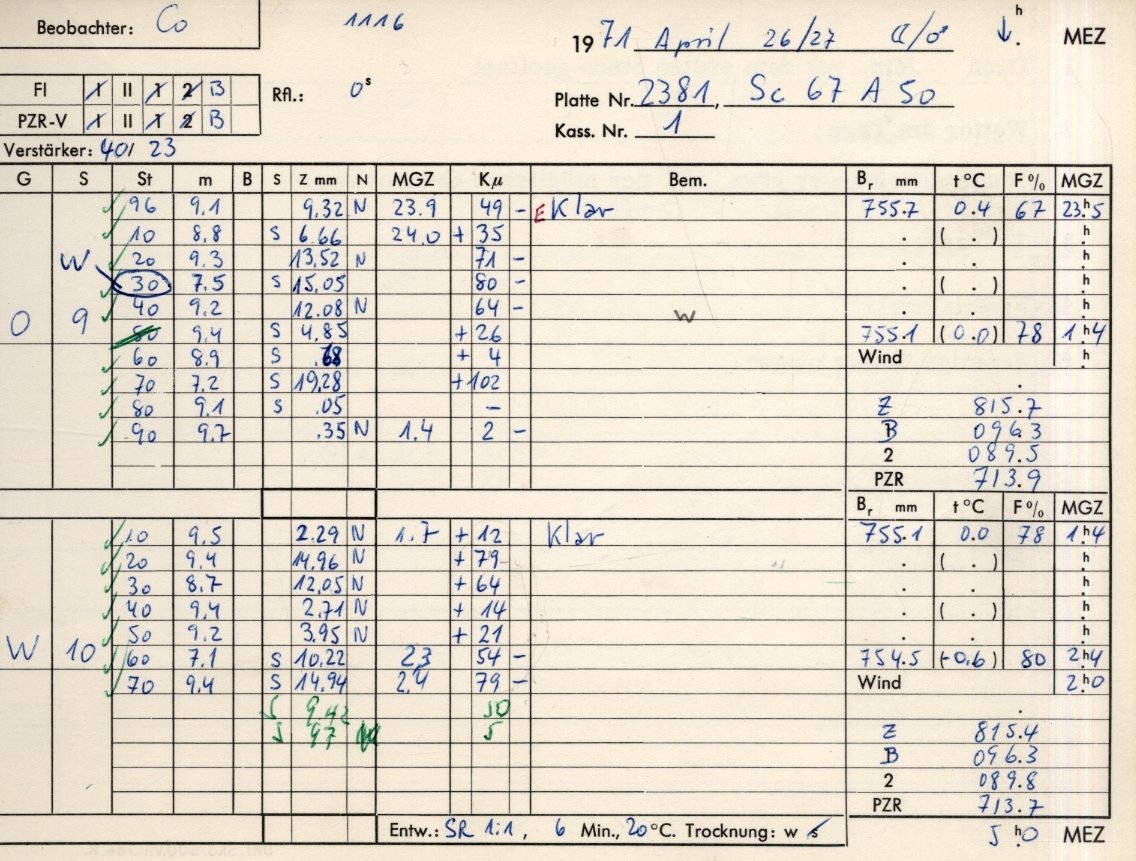 Beobachter: Co 1116 1971 April 26/27 h MEZ
FI I II 1 2 B Rfl.: 0s Platte Nr. 2381, Sc 67 A 50
PZR-V I II 1 2 B Kass. Nr. 1
Verstärker: 40/ 23
G S St m B S Z mm N MGZ Kμ Bem. Br mm t°C F% MGZ
96 9.1 9,32 N 23.9 49 - E Klar 755.7 0.4 67 23.h5
10 8.8 S 6.66 24.0 + 35 . ( . ) .h
W 20 9.3 13,52 N 71 - . .h
30 7.5 S 15,05 80 - . ( . ) .h
40 9.2 12.08 N 64 - . .h
O 9 50 9.4 S 4.85 + 26 W 755.1 (0.0) 78 1.h4
60 8.9 S .68 + 4 Wind h
70 7.2 S 19,28 + 102 .
80 9.1 S .05 - Z 815.7
90 9.7 .35 N 1.4 2 - B 096.3
2 089.5
PZR 713.9
Br mm t°C F% MGZ
10 9.5 2.29 N 1.7 + 12 Klar 755.1 0.0 78 1.h4
20 9.4 14.96 N + 79 . ( . ) .h
30 8.7 12,05 N + 64 . .h
40 9.4 2.71 N + 14 . ( . ) .h
50 9.2 3.95 N + 21 . .h
W 10 60 7.1 S 10,22 2,3 54 - 754.5 (-0.6) 80 2.h4
70 9.4 S 14,94 2,4 79 - Wind 2.h0
S 9,42 50 .
S 97 N 5 Z 815.4
B 096.3
2 089.8
PZR 713.7
Entw.: SR 1:1, 6 Min., 20 °C. Trocknung: w s 5 h0 MEZ